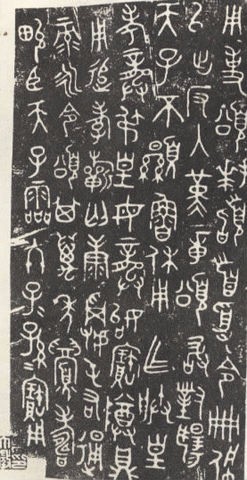 用事頌拜𩒨首受令冊佩
以出反入堇章頌敢對揚
天子不顯魯休用乍朕皇
考龏弔皇母龏始寶尊鼎
用追孝𣄨匄康屯右通
彔永令頌其萬年眉壽
畯臣天子霝冬子子孫孫寶用